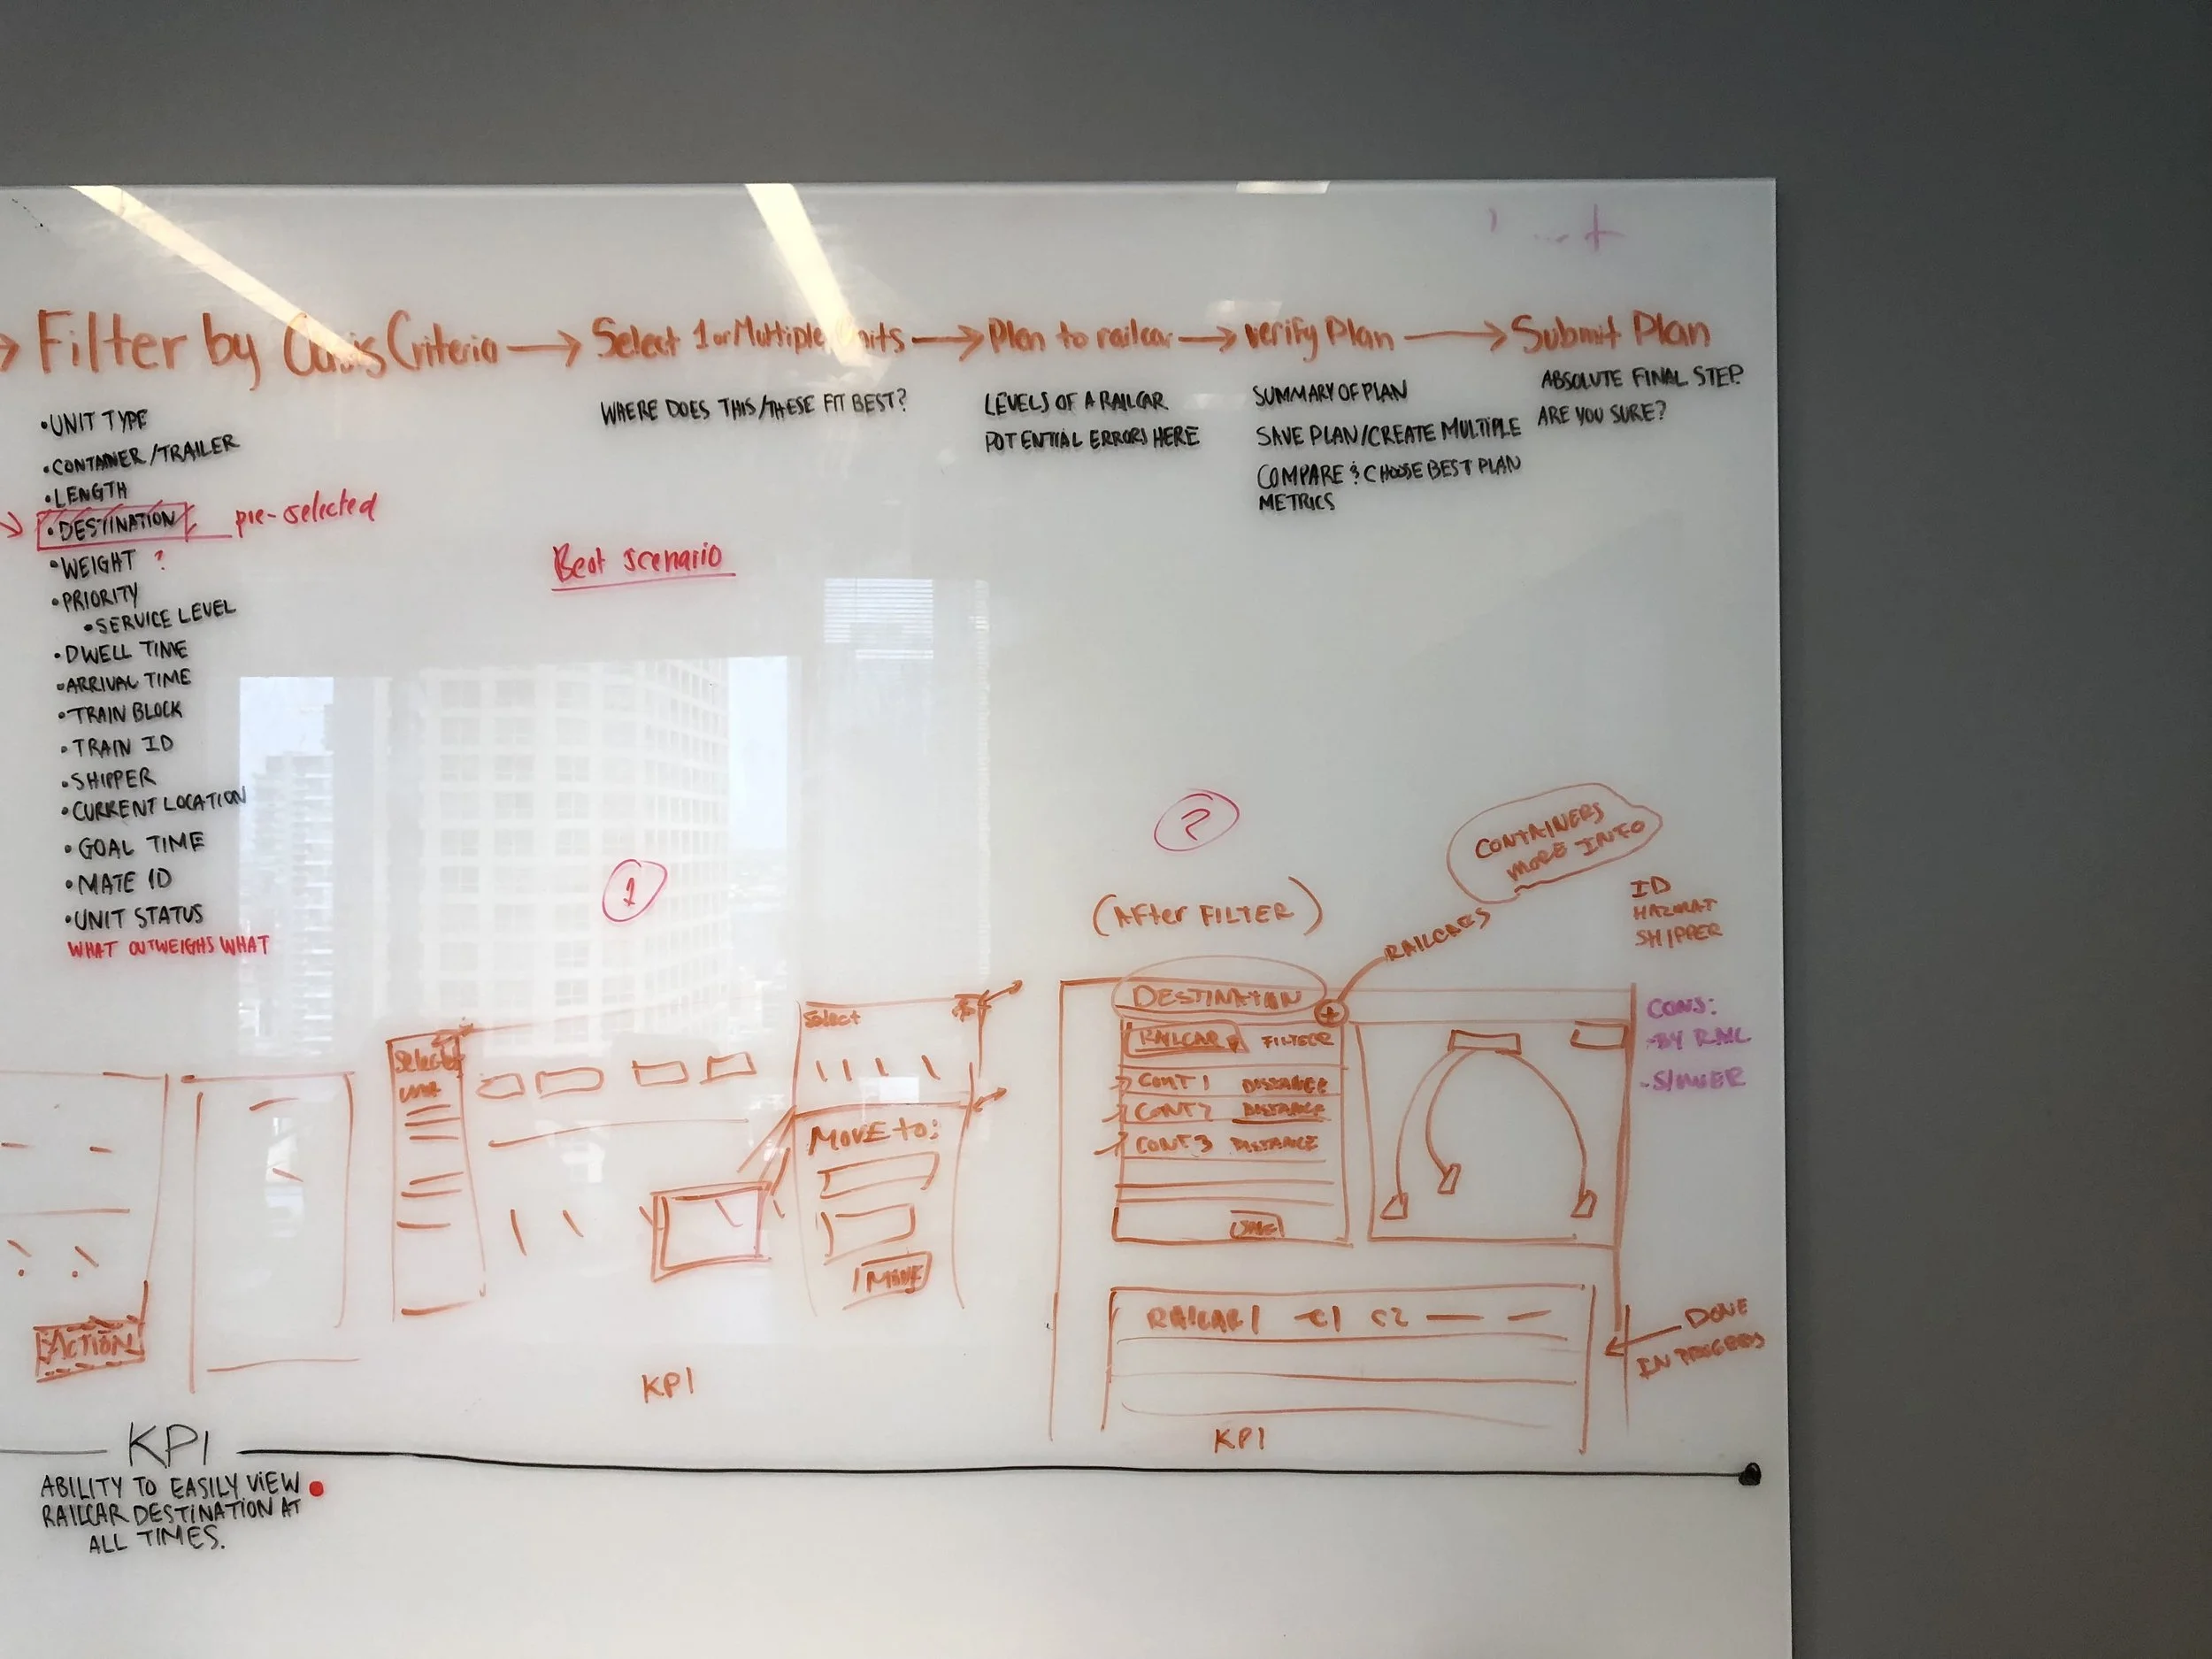 Filter by Oasis Criteria
Select 1 or Multiple Units
Plan to railcar
verify Plan
Submit Plan
• UNIT TYPE
• CONTAINER/TRAILER
• LENGTH
• DESTINATION
pre-selected
• WEIGHT ?
• PRIORITY
• SERVICE LEVEL
• DWELL TIME
• ARRIVAL TIME
• TRAIN BLOCK
• TRAIN ID
• SHIPPER
• CURRENT LOCATION
• GOAL TIME
• MATE ID
• UNIT STATUS
WHAT OUTWEIGHS WHAT
WHERE DOES THIS/THESE FIT BEST?
LEVELS OF A RAILCAR
POTENTIAL ERRORS HERE
SUMMARY OF PLAN
SAVE PLAN/CREATE MULTIPLE
COMPARE & CHOOSE BEST PLAN
METRICS
ABSOLUTE FINAL STEP.
ARE YOU SURE?
Best scenario
1
ACTION
Selected
unit
Select
MOVE to:
MOVE
KPI
2
(AFter FILTER)
CONTAINERS
MORE INFO
RAILCARS
ID
HAZMAT
SHIPPER
DESTINATION
+
RAILCAR
FILTER
CONT 1 DISTANCE
CONT 2 DISTANCE
CONT 3 DISTANCE
CONS:
-BY RAIL
RAILCAR 1 C1 C2
DONE
IN PROGRESS
KPI
KPI
ABILITY TO EASILY VIEW
RAILCAR DESTINATION AT
ALL TIMES.